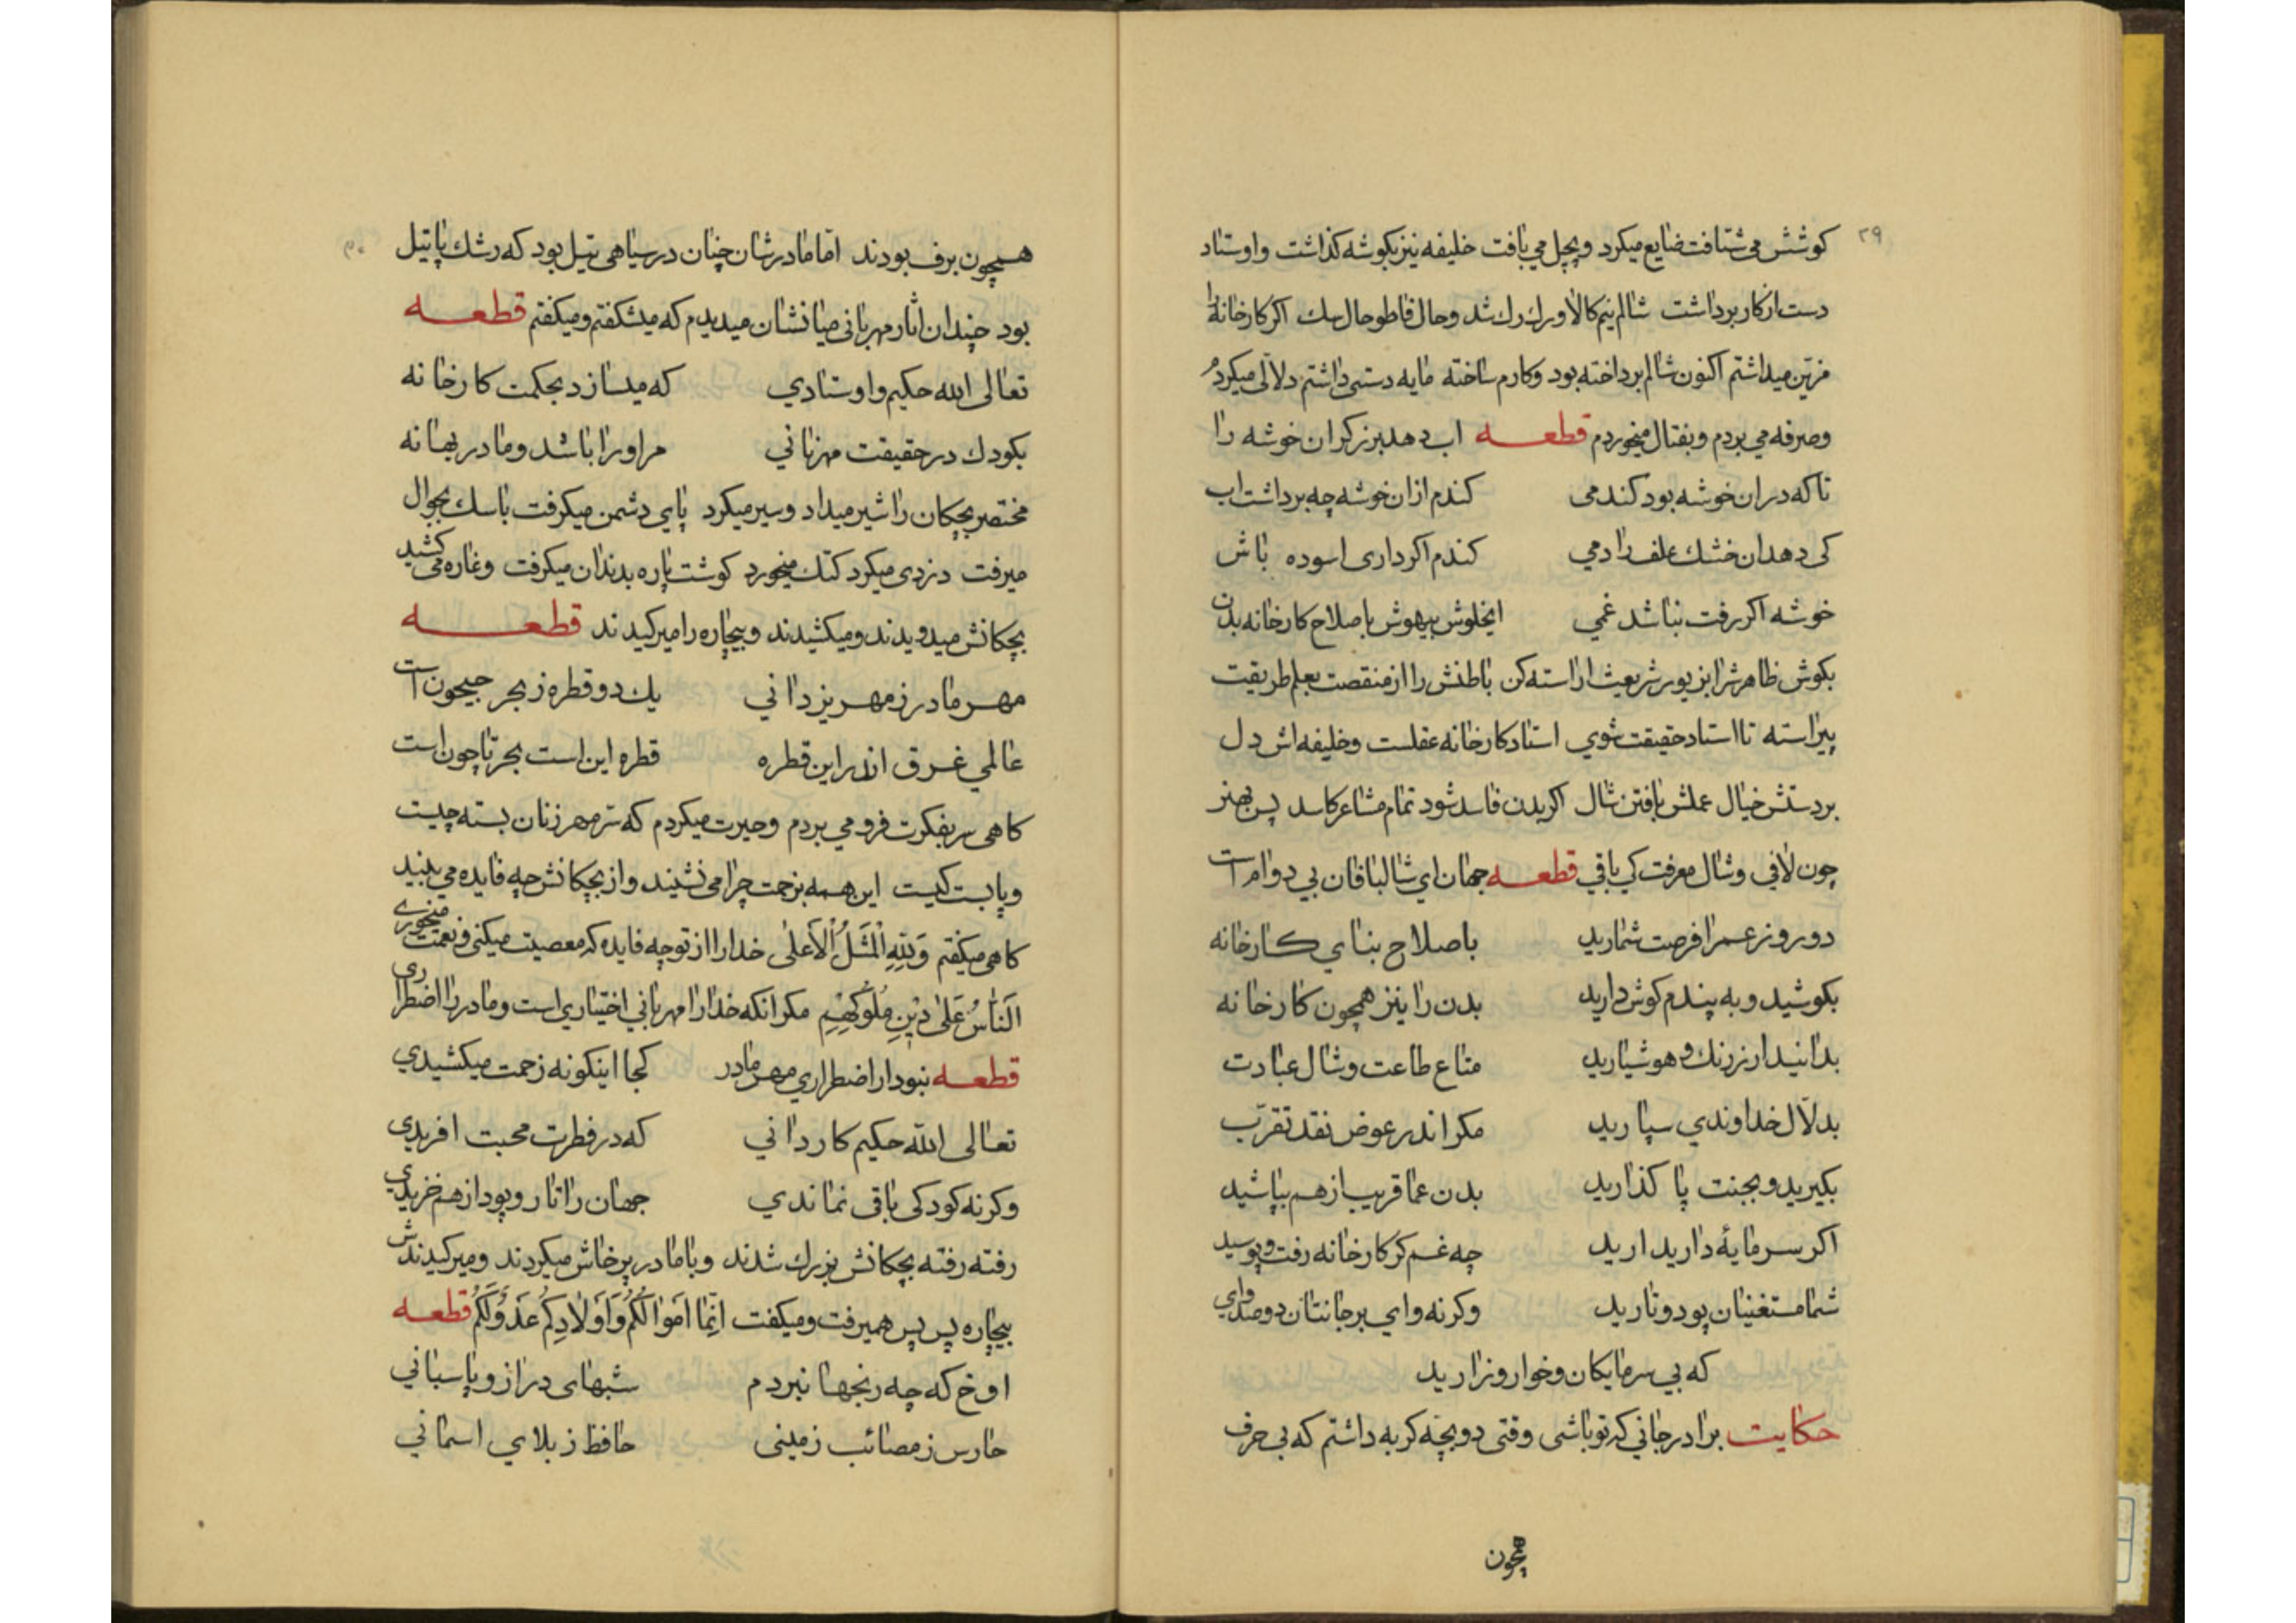 ۲۹
کوشش می شتافت ضایع میکرد وبچل می بافت خلیفه نیز بکوشه کذاشت واوستاد
دست ازکار برداشت شالم نیم کالا ورك رك شد وحال فاطوحال سك اکر کارخانهٔ را
مزین میداشتم اکنون شالم برداخته بود وکارم ساخته مایه دستی داشتم دلالی میکردم
وصرفه می بردم وبفتال میخوردم قطعــه اب دهد برزکران خوشه را
تاکه دران خوشه بود کندمی کندم ازان خوشه چه برداشت اب
کی دهد ان خشك علف را دمی کندم اکرداری اسوده باش
خوشه اکر رفت نباشد غمی ایخلوش بیهوش باصلاح کارخانه بدن
بکوش ظاهرش را بزیور شریعت اراسته کن باطنش را از منقصت بعلم طریقت
پیراسته تا استاد حقیقت شوی استاد کارخانه عقلست وخلیفه اش دل
بردستش خیال عملش بافتن شال اکر بدن فاسد شود تمام مشاعر کاسد پس بهنر
چون لافی وشال معرفت کی بافی قطعــه جهان ای شالبافان بی دوام است
دو روز عمر را فرصت شمارید باصلاح بنای کارخانه
بکوشید و به پندم کوش دارید بدن را نیز همچون کارخانه
بدانید ار زرنك و هوشیارید متاع طاعت وشال عبادت
بدلّال خداوندی سپارید مکر اندر عوض نقد تقرّب
بکیرید وبجنت پا کذارید بدن عما قریب از هم بپاشید
اکر سرمایهٔ دارید ارید چه غم کر کارخانه رفت وپوسید
شما مستغنیان پود وتارید وکرنه وای برجانتان دوصد وای
که بی سرمایکان وخوار وزارید
حکایت برادر جانی که تو باشی وقتی دو بچّه کربه داشتم که بی حرف
همچون
۳۰
همچون برف بودند امّا مادرشان چنان در سیاهی تیل بود که رشك پاتیل
بود چندان اثار مهربانی میانشان میدیدم که میشکفتم ومیکفتم قطعــه
تعالی الله حکیم واوستادی که میسازد بحکمت کارخانه
بکودك در حقیقت مهربانی مر او را باشد ومادر بهانه
مختصر بچکان را شیر میداد وسیر میکرد پای دشمن میکرفت باسك بجوال
میرفت دزدی میکرد کتك میخورد کوشت پاره بدندان میکرفت وغاره می کشید
بچکانش میدویدند ومیکشیدند وبیچاره را میرکیدند قطعــه
مهر مادر ز مهر یزدانی یك دو قطره ز بحر جیحون است
عالمی غرق اندر این قطره قطره این است بحر تا چون است
کاهی سر بفکرت فرو می بردم وحیرت میکردم که سر مهر زنان بسته چیست
وپابست کیست این همه بزحمت چرا می نشیند واز بچکانش چه فایده می بیند
کاهی میکفتم وَلِلّٰهِ الْمَثَلُ الْاَعلٰی خدا را از تو چه فایده که معصیت میکنی ونعمت میخوری
اَلنّاسُ عَلٰی دِیْنِ مُلُوکِهِمْ مکر انکه خدا را مهربانی اختیاری است ومادر را اضطراری
قطعــه نبود ار اضطراری مهر مادر کجا اینکونه زحمت میکشیدی
تعالی الله حکیم کاردانی که در فطرت محبت افریدی
وکرنه کودکی باقی نماندی جهان را تار وپود از هم خزیدی
رفته رفته بچکانش بزرك شدند وبا مادر پرخاش میکردند ومیرکیدندش
بیچاره پس پس همیرفت ومیکفت اِنّما اَمْوالُکُمْ وَاَوْلادِکُمْ عَدُوٌّلَکُمْ قطعــه
اوخ که چه رنجها نبردم شبهای دراز وپاسبانی
حارس ز مصائب زمینی حافظ ز بلای اسمانی